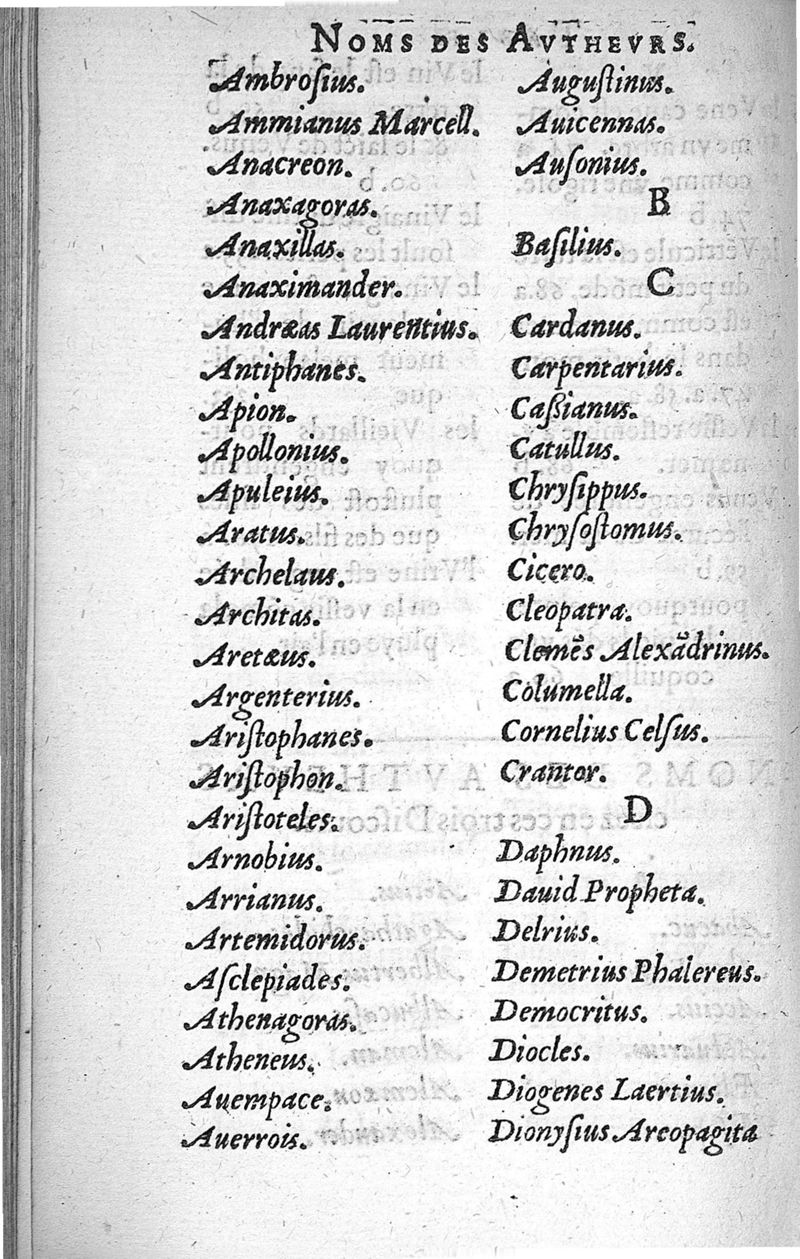 NOMS DES AVTHEVRS.
Ambroſius.
Ammianus Marcell.
Anacreon.
Anaxagoras.
Anaxillas.
Anaximander.
Andræas Laurentius.
Antiphanes.
Apion.
Apollonius.
Apuleius.
Aratus.
Archelaus.
Architas.
Aretæus.
Argenterius.
Ariſtophanes.
Ariſtophon.
Ariſtoteles.
Arnobius.
Arrianus.
Artemidorus.
Aſclepiades.
Athenagoras.
Atheneus.
Auempace.
Auerrois.
Auguſtinus.
Auicennas.
Auſonius.
B
Baſilius.
C
Cardanus.
Carpentarius.
Caßianus.
Catullus.
Chryſippus.
Chryſoſtomus.
Cicero.
Cleopatra.
Clemẽs Alexãdrinus.
Columella.
Cornelius Celſus.
Crantor.
D
Daphnus.
Dauid Propheta.
Delrius.
Demetrius Phalereus.
Democritus.
Diocles.
Diogenes Laertius.
Dionyſius Areopagita